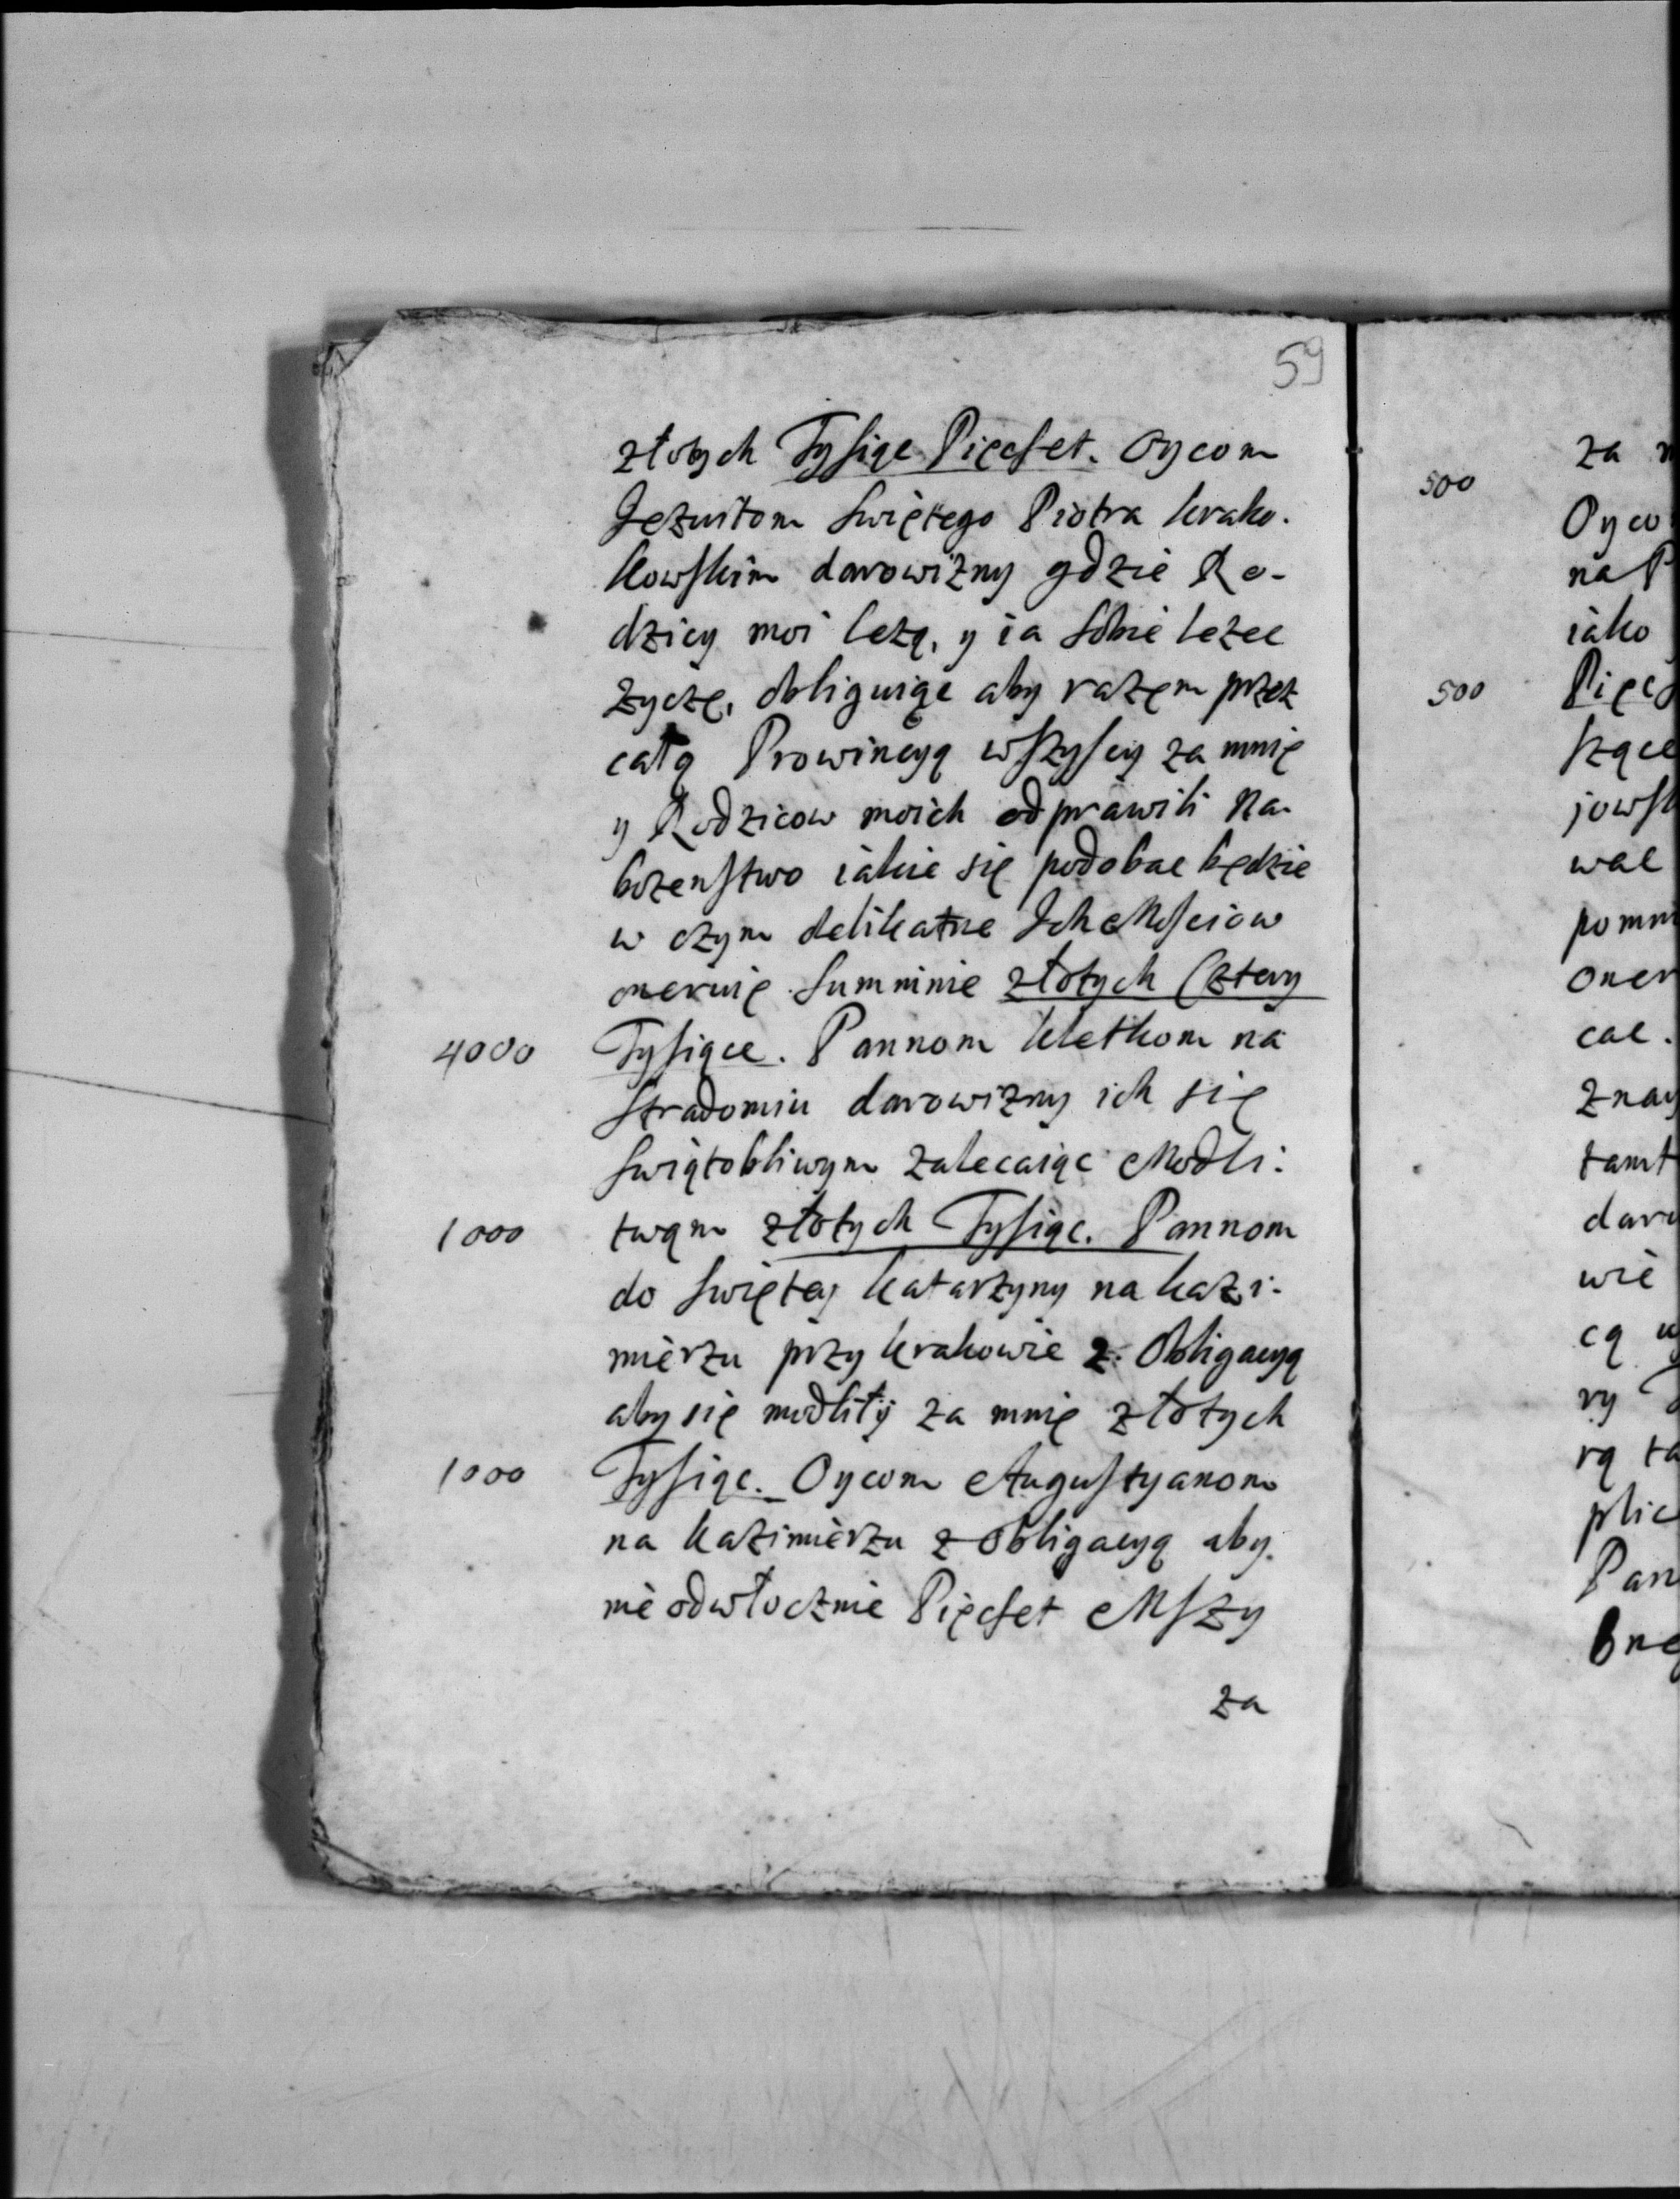 59
złotych Tysiąc Pięcset. Oycom
Jezuitom Swiętego Piotra krako.
kowskim darowizny gdzie Ro-
dzicy moi leżą, y ia sobie leżec
życzę, obliguiąc aby razem przez
całą Prowincyą wszyscy za mnię
y Rodzicow moich odprawili Na-
bozenstwo iakie się podobac będzie
w czym delikatne Ich Mosciow
oneruię Sumninie złotych Cztery
4000 Tysiące. Pannom kletkom na
Stradomiu darowizny ich się
swiątobliwym zalecaiąc Modli:
1000 twąm złotych Tysiąc. Pannom
do Swiętey katarzyny na kazi:
mierzu przy krakowie z Obligacyą
aby się modliły za mnię złotych
1000 Tysiąc. Oycom Augustyanom
na kazimierzu z Obligacyą aby
nieodwłocznie Pięcset Mszy
za
500 za
Oyco
na P
iako
500 Pięcs
szące
jowsk
wac
pomn
oner
cac.
znay
tamt
daro
wie
cą
ry
rą ta
plic
Pan